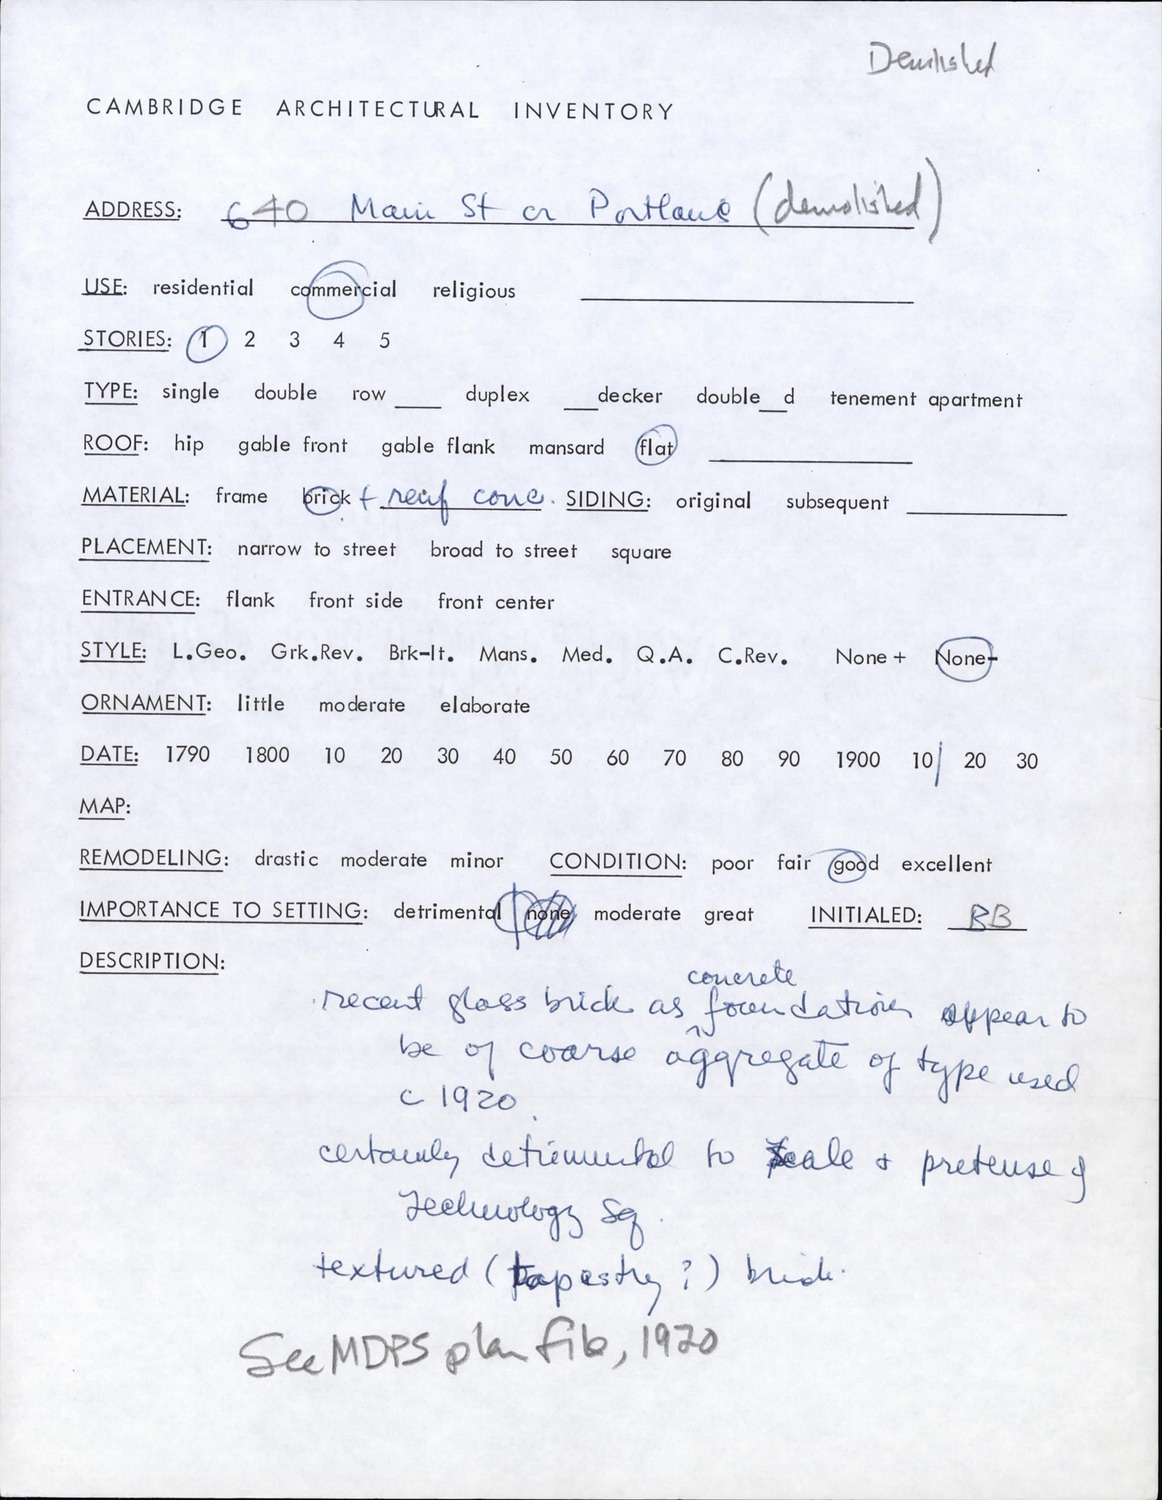 Demolished
CAMBRIDGE ARCHITECTURAL INVENTORY
ADDRESS: 640 Main St cr Portland (demolished)
USE: residential commercial religious
STORIES: 1 2 3 4 5
TYPE: single double row ___ duplex ___decker double__d tenement apartment
ROOF: hip gable front gable flank mansard flat
MATERIAL: frame brick + reinf conc. SIDING: original subsequent
PLACEMENT: narrow to street broad to street square
ENTRANCE: flank front side front center
STYLE: L.Geo. Grk.Rev. Brk-It. Mans. Med. Q.A. C.Rev. None + None-
ORNAMENT: little moderate elaborate
DATE: 1790 1800 10 20 30 40 50 60 70 80 90 1900 10 20 30
MAP:
REMODELING: drastic moderate minor CONDITION: poor fair good excellent
IMPORTANCE TO SETTING: detrimental none moderate great INITIALED: BB
DESCRIPTION:
recent glass brick as concrete foundations appear to
be of coarse aggregate of type used
c 1920.
certainly detrimental to scale + pretense of
Technology Sq.
textured (tapestry?) brick.
See MDPS plan file, 1920